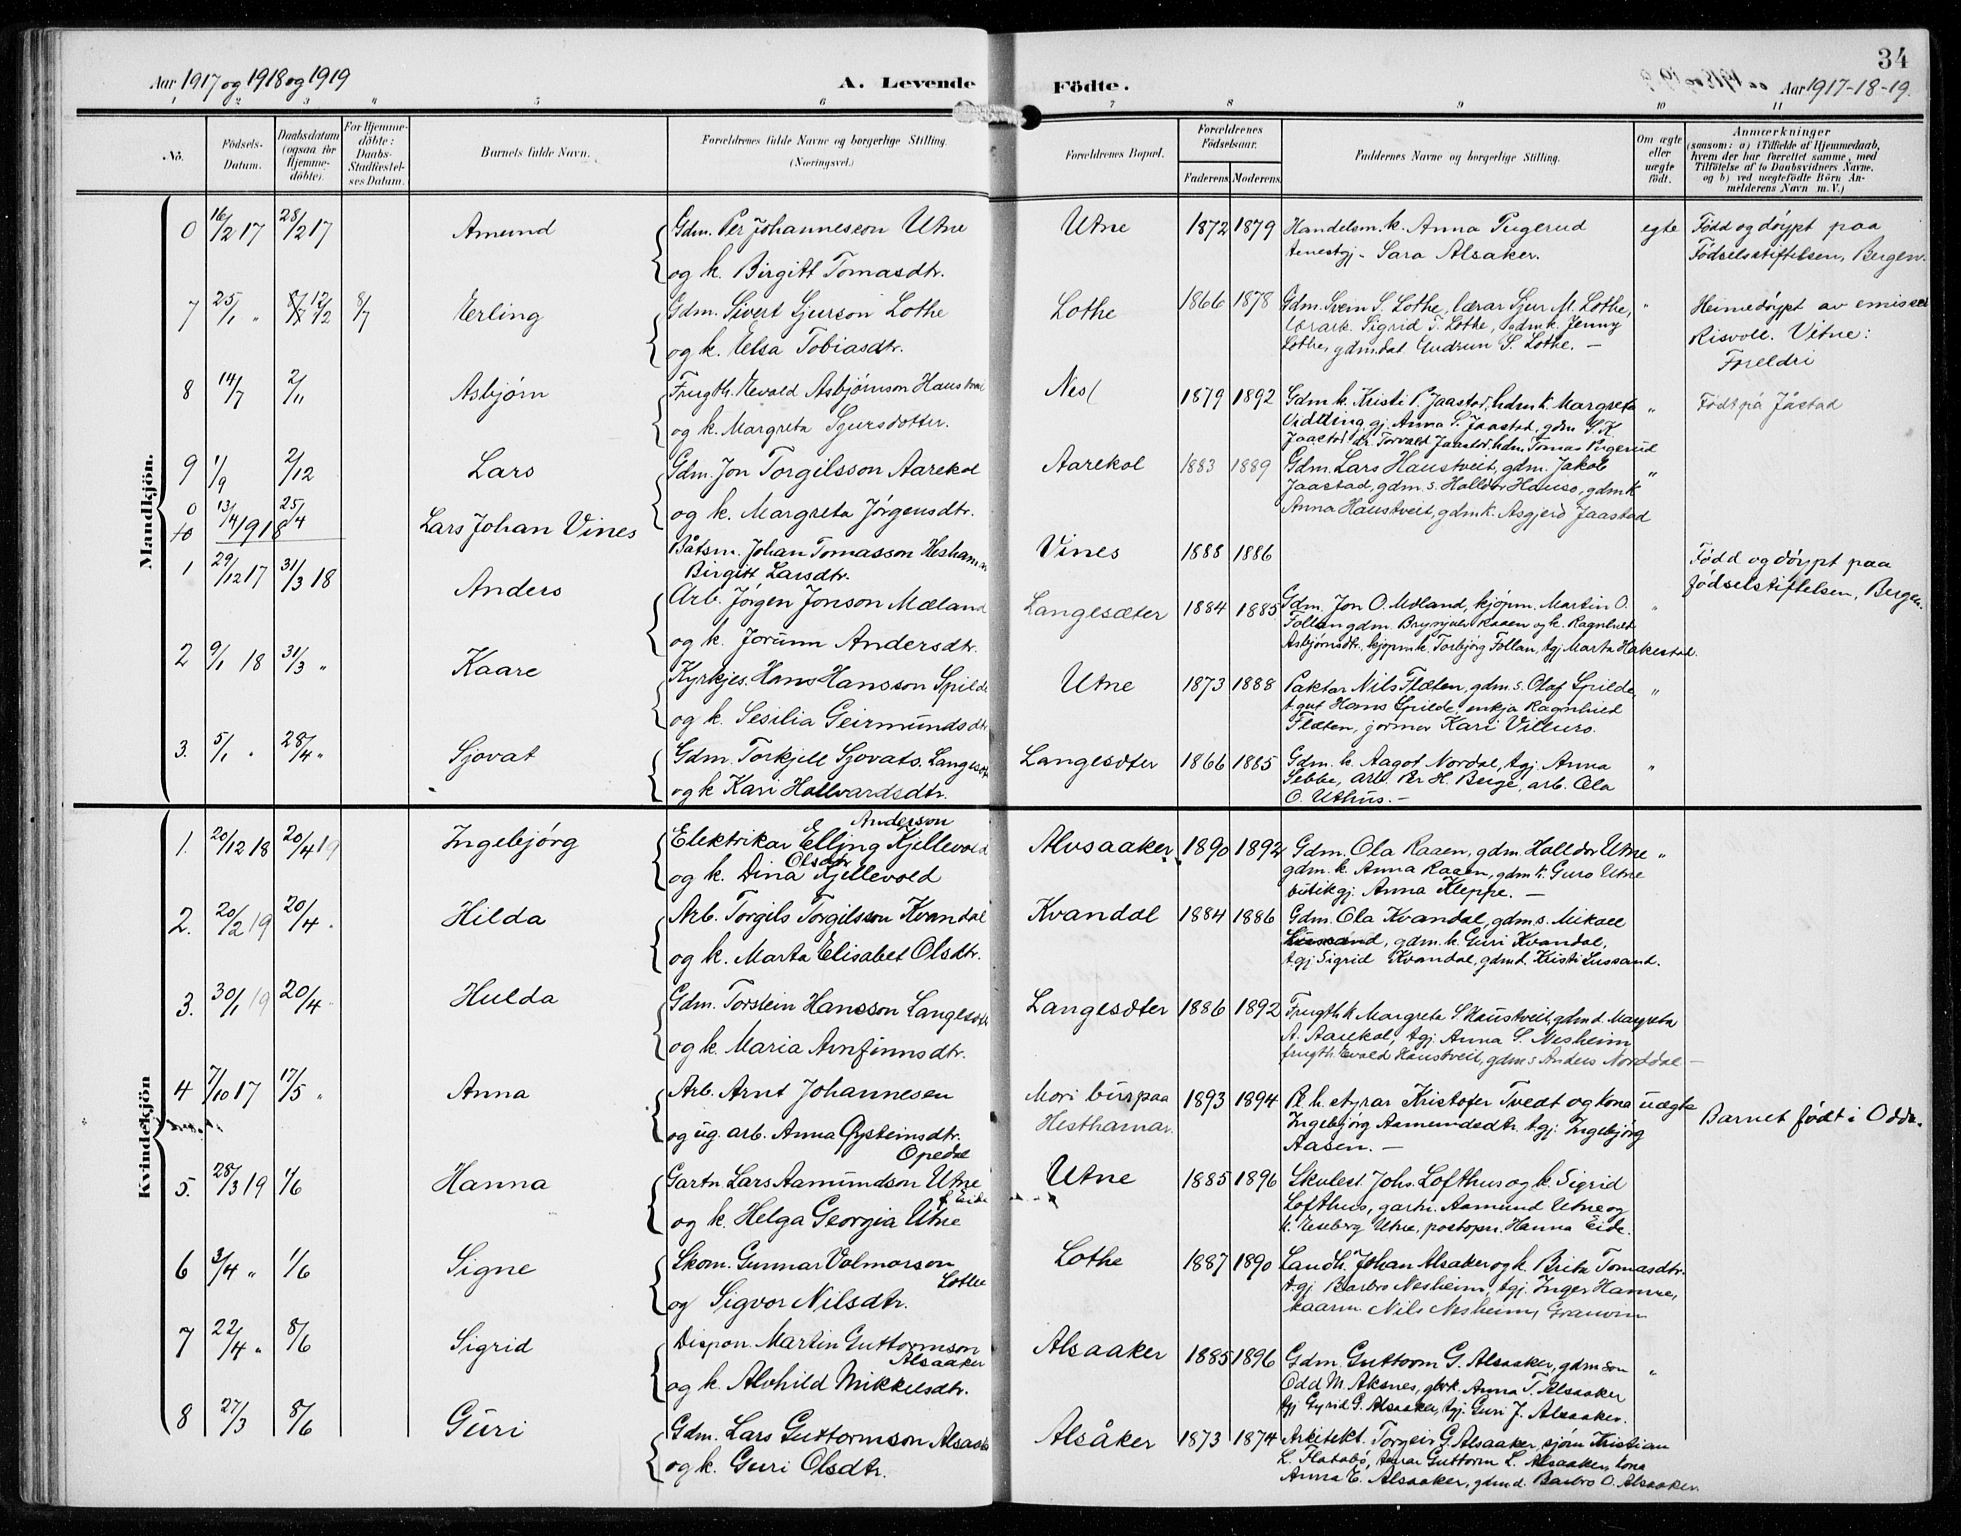 34
Aar 1917 og 1918 og 1919
A. Levende Födte.
Aar 1917-18-19.
1 2 3 4 5 6 7 8 9 10 11
No.
Födsels-Datum.
Daabsdatum (ogsaa for Hjemme-döbte).
For Hjemme-döbte: Daabs-Stadfæstel-ses Datum.
Barnets fulde Navn.
Forældrenes fulde Navne og borgerlige Stilling. (Næringsvei.)
Forældrenes Bopæl.
Forældrenes Födselsaar.
Faderens. Moderens.
Faddernes Navne og borgerlige Stilling.
Om ægte eller uægte födt.
Anmærkninger
(saasom: a) i Tilfælde af Hjemmedaab,
hvem der har forrettet samme, med
Tilföielse af to Daabsvidners Navne.
og b) ved uægtefödte Börn An-
melderens Navn m. V.)
Mandkjön.
0 16/2 17 28/2 17 Amund Gdm. Per Johannesson Utne Utne 1872 1879 Handelsm. k. Anna Pugerud egte Född og döypt paa
og k. Birgitt Tomasdtr. tenestgj. Sara Alsaker. Födselsstiftelsen, Bergen.
7 25/1 " 12/2 8/7 Erling Gdm. Sivert Sjurson Lothe Lothe 1866 1878 Gdm. Svein S. Lothe, lærar Sjur M. Lothe, " Heimedöypt av emissær
og k. Elsa Tobiasdtr. lærark. Sigrid T. Lothe, gdmk. Jenny Risvoll. Vitne:
Lothe, gdmdat. Gudrun S. Lothe. — Foreldri
8 14/7 2/11 Asbjörn Frugth. Evald Asbjörnson Haustveit Nes 1879 1892 Gdm. k. Kristi P. Jaastad, hdm k. Margreta " Födt på Jåstad
og k. Margreta Sjursdotter. Vidding, gj. Anna S. Jaastad, gdm. S. K.
Jaastad, dr. Torvald Jaastad, hdm. Tomas Pugerud
9 1/9 2/12 Lars Gdm. Jon Torgilsson Aarekol Aarekol 1883 1889 Gdm. Lars Haustveit, gdm. Jakob "
og k. Margreta Jörgensdtr. Jaastad, gdm. s. Halldor Hauso, gdmk
Anna Haustveit, gdmk. Asgjerd Jaastad
0 13/4 1918 25/4 Lars Johan Vines Båtsm. Johan Tomasson Hesthamm Vines 1888 1886 Född og döypt paa
Birgitt Larsdtr. födselstiftelsen, Bergen.
1 29/12 17 31/3 18 Anders Arb. Jörgen Jonson Mæland Langesæter 1884 1885 Gdm. Jon O. Mæland, kjöpm. Martin O. "
og k. Jorunn Andersdtr. Follan gdm. Brynjulv Raaen og k. Ragnhild
Asbjörnsdtr., kjöpmk. Torbjörg Follan, tgj Marta Hakestad.
2 9/1 18 31/3 " Kaare Kyrkjes. Hans Hansson Spilde Utne 1873 1888 Paktar Nils Flæten, gdm. s. Olaf Spilde, "
og k. Sesilia Geirmundsdtr t. gut Hans Spilde, enkja Ragnhild
Flæten, jormor Kari Villuro.
3. 5/1 " 28/4 " Sjovat Gdm. Torkjell Sjovats. Langesæt Langesæter 1866 1885 Gdm. k. Aagot Nordal, tgj. Anna "
og k Kari Hallvardsdtr. Sebbe, arb. Per H. Berge, arb. Ola
O. Uthus. —
Kvindekjön
1. 20/12 18 20/4 19 Ingebjörg Elektrikar Elling Anderson Kjellevold Alvsaaker 1890 1892 Gdm. Ola Raaen, gdm. Halldor Utne "
og k. Dina Olsdtr Kjellevold gdm. k. Anna Raaen, gdm k. Guro Utne
butikgj. Anna Kleppe. —
2. 20/2 19 20/4 . Hilda Arb. Torgils Torgilsson Kvandal Kvandal 1884 1886 Gdm. Ola Kvandal, gdm s. Mikael
og k. Marta Elisabet Olsdtr. Lussand, gdm. k. Guri Kvandal,
tgj Sigrid Kvandal, gdmd. Kristi Lussand.
3. 30/1 19 20/4 . Hulda Gdm. Torstein Hansson Langesæt Langesæter 1886 1892 Frugth k. Margreta S Haustveit, gdm d. Margreta
og k. Maria Arnfinnsdtr. A. Aarekol, tgj Anna S. Nesheim
frugth. Evald Haustveit, gdm s Anders Norddal —
4 7/10 17 17/5 " Anna Arb. Arnt Johannesen Mori bur paa 1893 1894 R. h. styrar Kristofer Tvedt og kona uægte Barnet födt i Odda.
og ug. arb. Anna Öysteinsdtr. Opedal Hesthamar. Ingebjörg Aamundsdtr. tgj. Ingebjörg
Aasen. —
5. 28/3 19 1/6 Hanna Gartn. Lars Aamundson Utne Utne 1885 1896 Skulest. Johs. Lofthus og k. Sigrid
og k. Helga Georgia Utne f. Eide Lofthus, gartn. Aamund Utne og
k. Eseberg Utne, postopn. Hanna Eide.
6 3/4 " 1/6 Signe Skom. Gunnar Valmarson Lothe Lothe 1887 1890 Landh. Johan Alsaker og k. Brita Tomasdtr.
og Sigvor Nilsdtr. tgj Barbro Nesheim, tgj. Inger Hamre,
kaarm Nils Nesheim, Granvin
7 22/4 " 8/6 Sigrid Dispon. Martin Guttormson Alsaaker Alsaaker 1885 1896 Gdm. Guttorm G. Alsaaker, gdmson "
og k. Alvhild Mikkelsdtr. Odd M. Aksnes, gbrk. Anna T. Alsaaker
tgj Gyrid G. Alsaaker, tgj. Guri J. Alsaaker.
8 27/3 8/6 Guri Gdm. Lars Guttormson Alsaaker Alsåker 1873 1874 Arkitekt. Torgeir G. Alsaaker, sjöm Kristian
og k. Guri Olsdtr. L. Flatabö, Guttorm L. Alsaaker, kona
Anna E. Alsaaker, gdmd. Barbro O. Alsaaker.